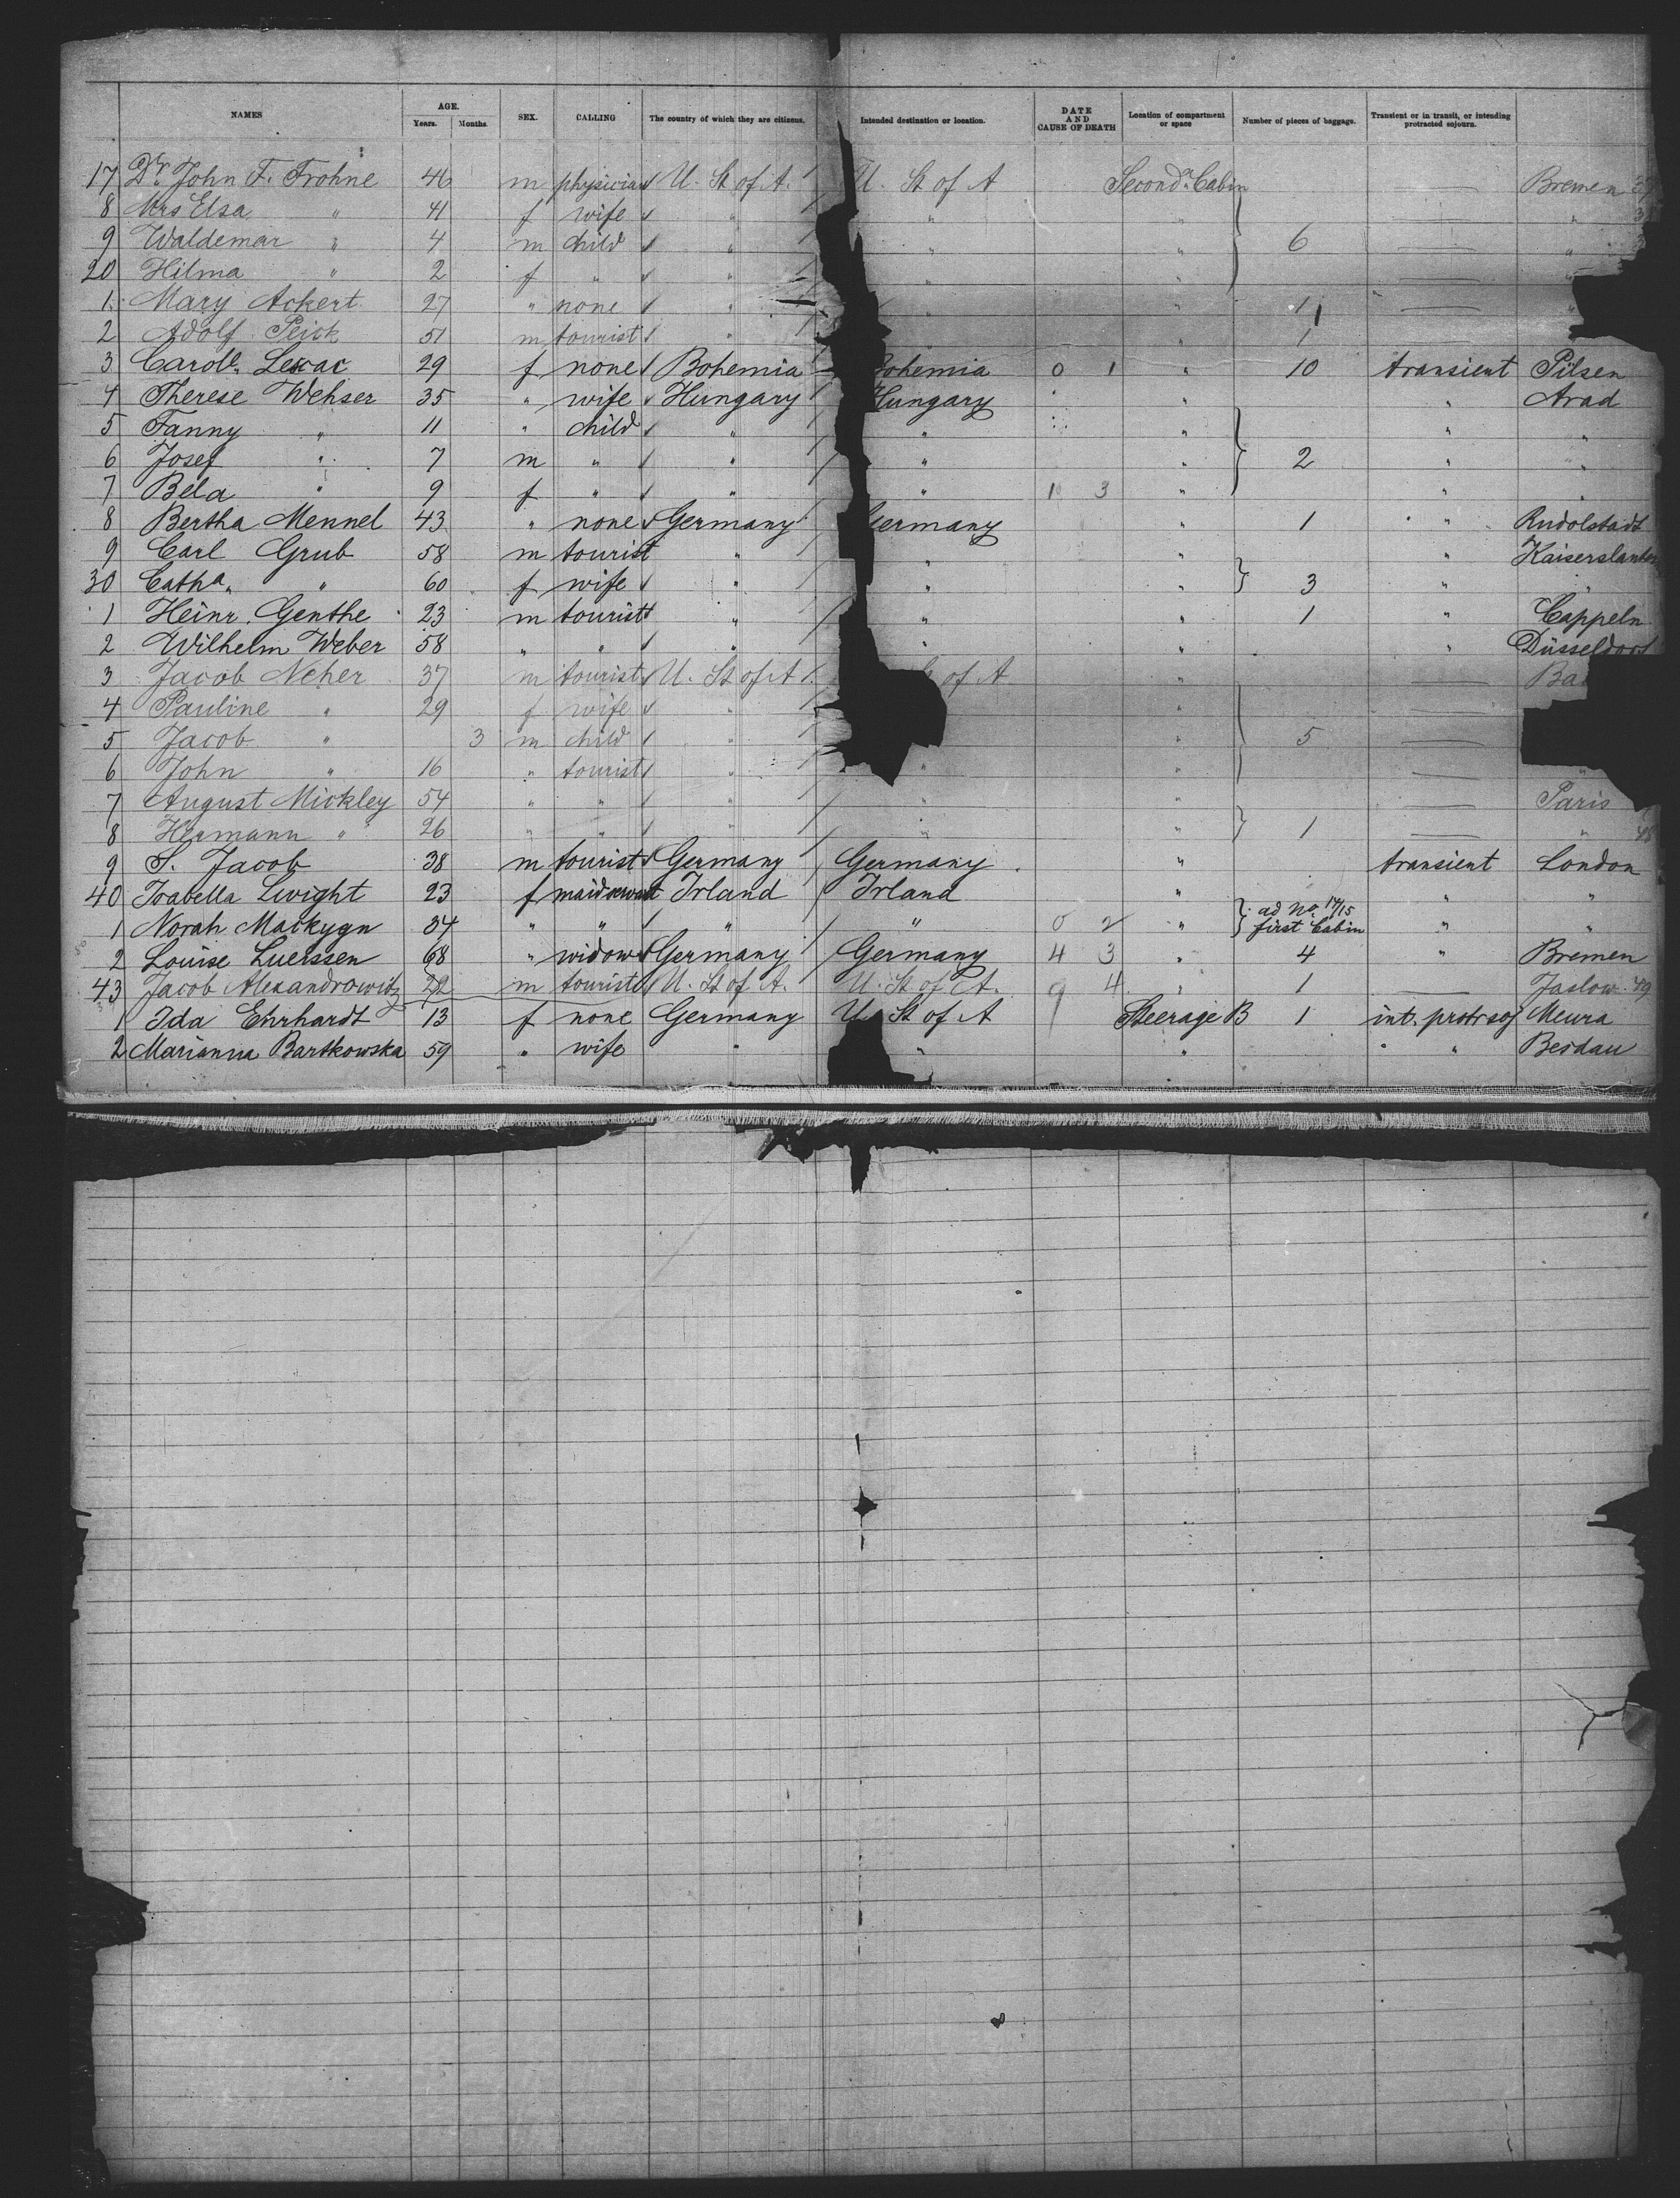 NAMES AGE. Years. Months. SEX. CALLING The country of which they are citizens. Intended destination or location. DATE AND CAUSE OF DEATH Location of compartment or space Number of pieces of baggage. Transient or in transit, or intending protracted sojourn.
17 Dr. John F. Frohne 46 m physician U. St of A. U. St of A Second Cabin Bremen
8 Mrs Elsa " 41 f wife " " "
9 Waldemar " 4 m child " " " 6 "
20 Hilma " 2 f " " " " "
1 Mary Ackert 27 " none " " 1 "
2 Adolf Peick 51 m tourist " " 1
3 Carol. 29 f none Bohemia Bohemia 0 1 " 10 transient Pilsen
4 Therese Wehser 35 " wife Hungary Hungary " " Arad
5 Fanny " 11 " child " " " " "
6 Josef " 7 m " " " " 2 " "
7 Bela " 9 f " " " 10 3 " " "
8 Bertha Mennel 43 " none Germany Germany " 1 " Rudolstadt
9 Carl Grub 58 m tourist " " " " Kaiserslautern
30 Catha. " 60 f wife " " " 3 " "
1 Heinr. Genthe 23 m tourist " " " 1 " Cappeln
2 Wilhelm Weber 58 " " " " " " Düsseldorf
3 Jacob Neher 37 m tourist U. St of A of A " Ba
4 Pauline " 29 f wife " "
5 Jacob " 3 m child " " 5
6 John " 16 " tourist " " " "
7 August Mickley 54 " " " " " Paris
8 Hermann " 26 " " " " " 1 " 48
9 S. Jacob 38 m tourist Germany Germany " transient London
40 Isabella Lwight 23 f maidservant Irland Irland " ad No. 14/15 " "
1 Norah Mackygn 34 " " " " 0 2 " first Cabin " "
2 Louise Luerssen 68 " widow Germany Germany 4 3 " 4 " Bremen
43 Jacob Alexandrowitz 22 m tourist U. St of A. U. St of A. 9 4 " 1 Jaslow 49
1 Ida Ehrhardt 13 f none Germany U St of A Steerage B 1 int. protr soj Meura
2 Marianna Bartkowska 59 " wife " " " " " Besdau